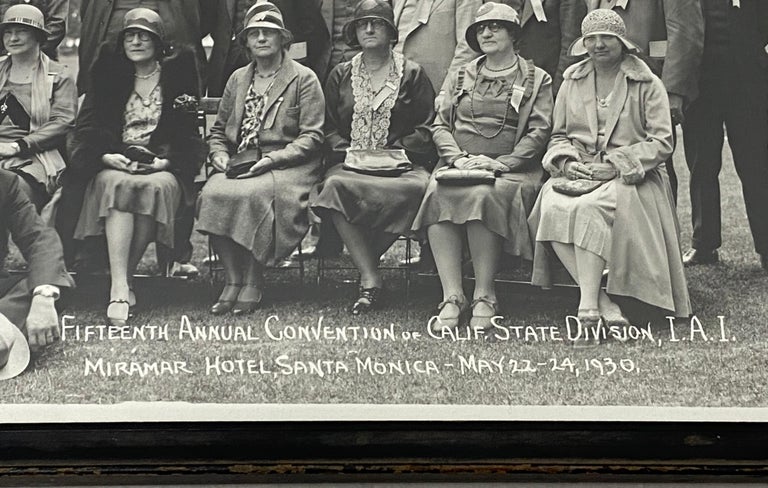 FIFTEENTH ANNUAL CONVENTION OF CALIF. STATE DIVISION, I.A.I.
MIRAMAR HOTEL, SANTA MONICA - MAY 22-24, 1930.